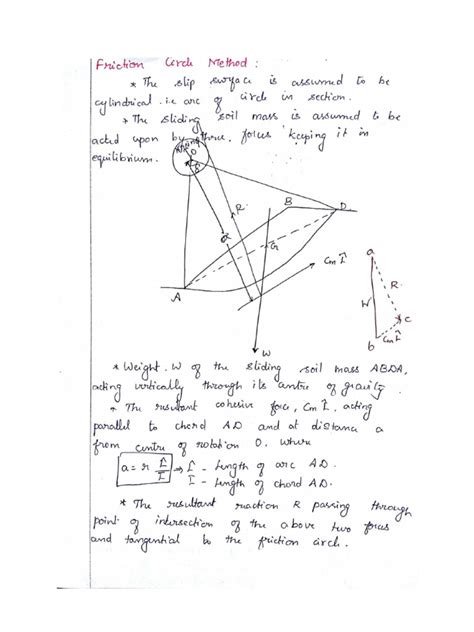 Friction Circle Method :
* The slip surface is assumed to be
cylindrical i.e arc of circle in section.
* The sliding soil mass is assumed to be
acted upon by three forces keeping it in
equilibrium.
O
B
D
R
a
G
Cm L̂
A
W
a
R
W
c
Cm L̂
b
* Weight, W of the sliding soil mass ABDA,
acting vertically through its centre of gravity
* The resultant cohesive force, Cm L̂, acting
parallel to chord AD and at distance a
from centre of rotation O, where
a = r L̂/L̄ → L̂ - length of arc AD.
L̄ - length of chord AD.
* The resultant reaction R passing through
point of intersection of the above two forces
and tangential to the friction circle.